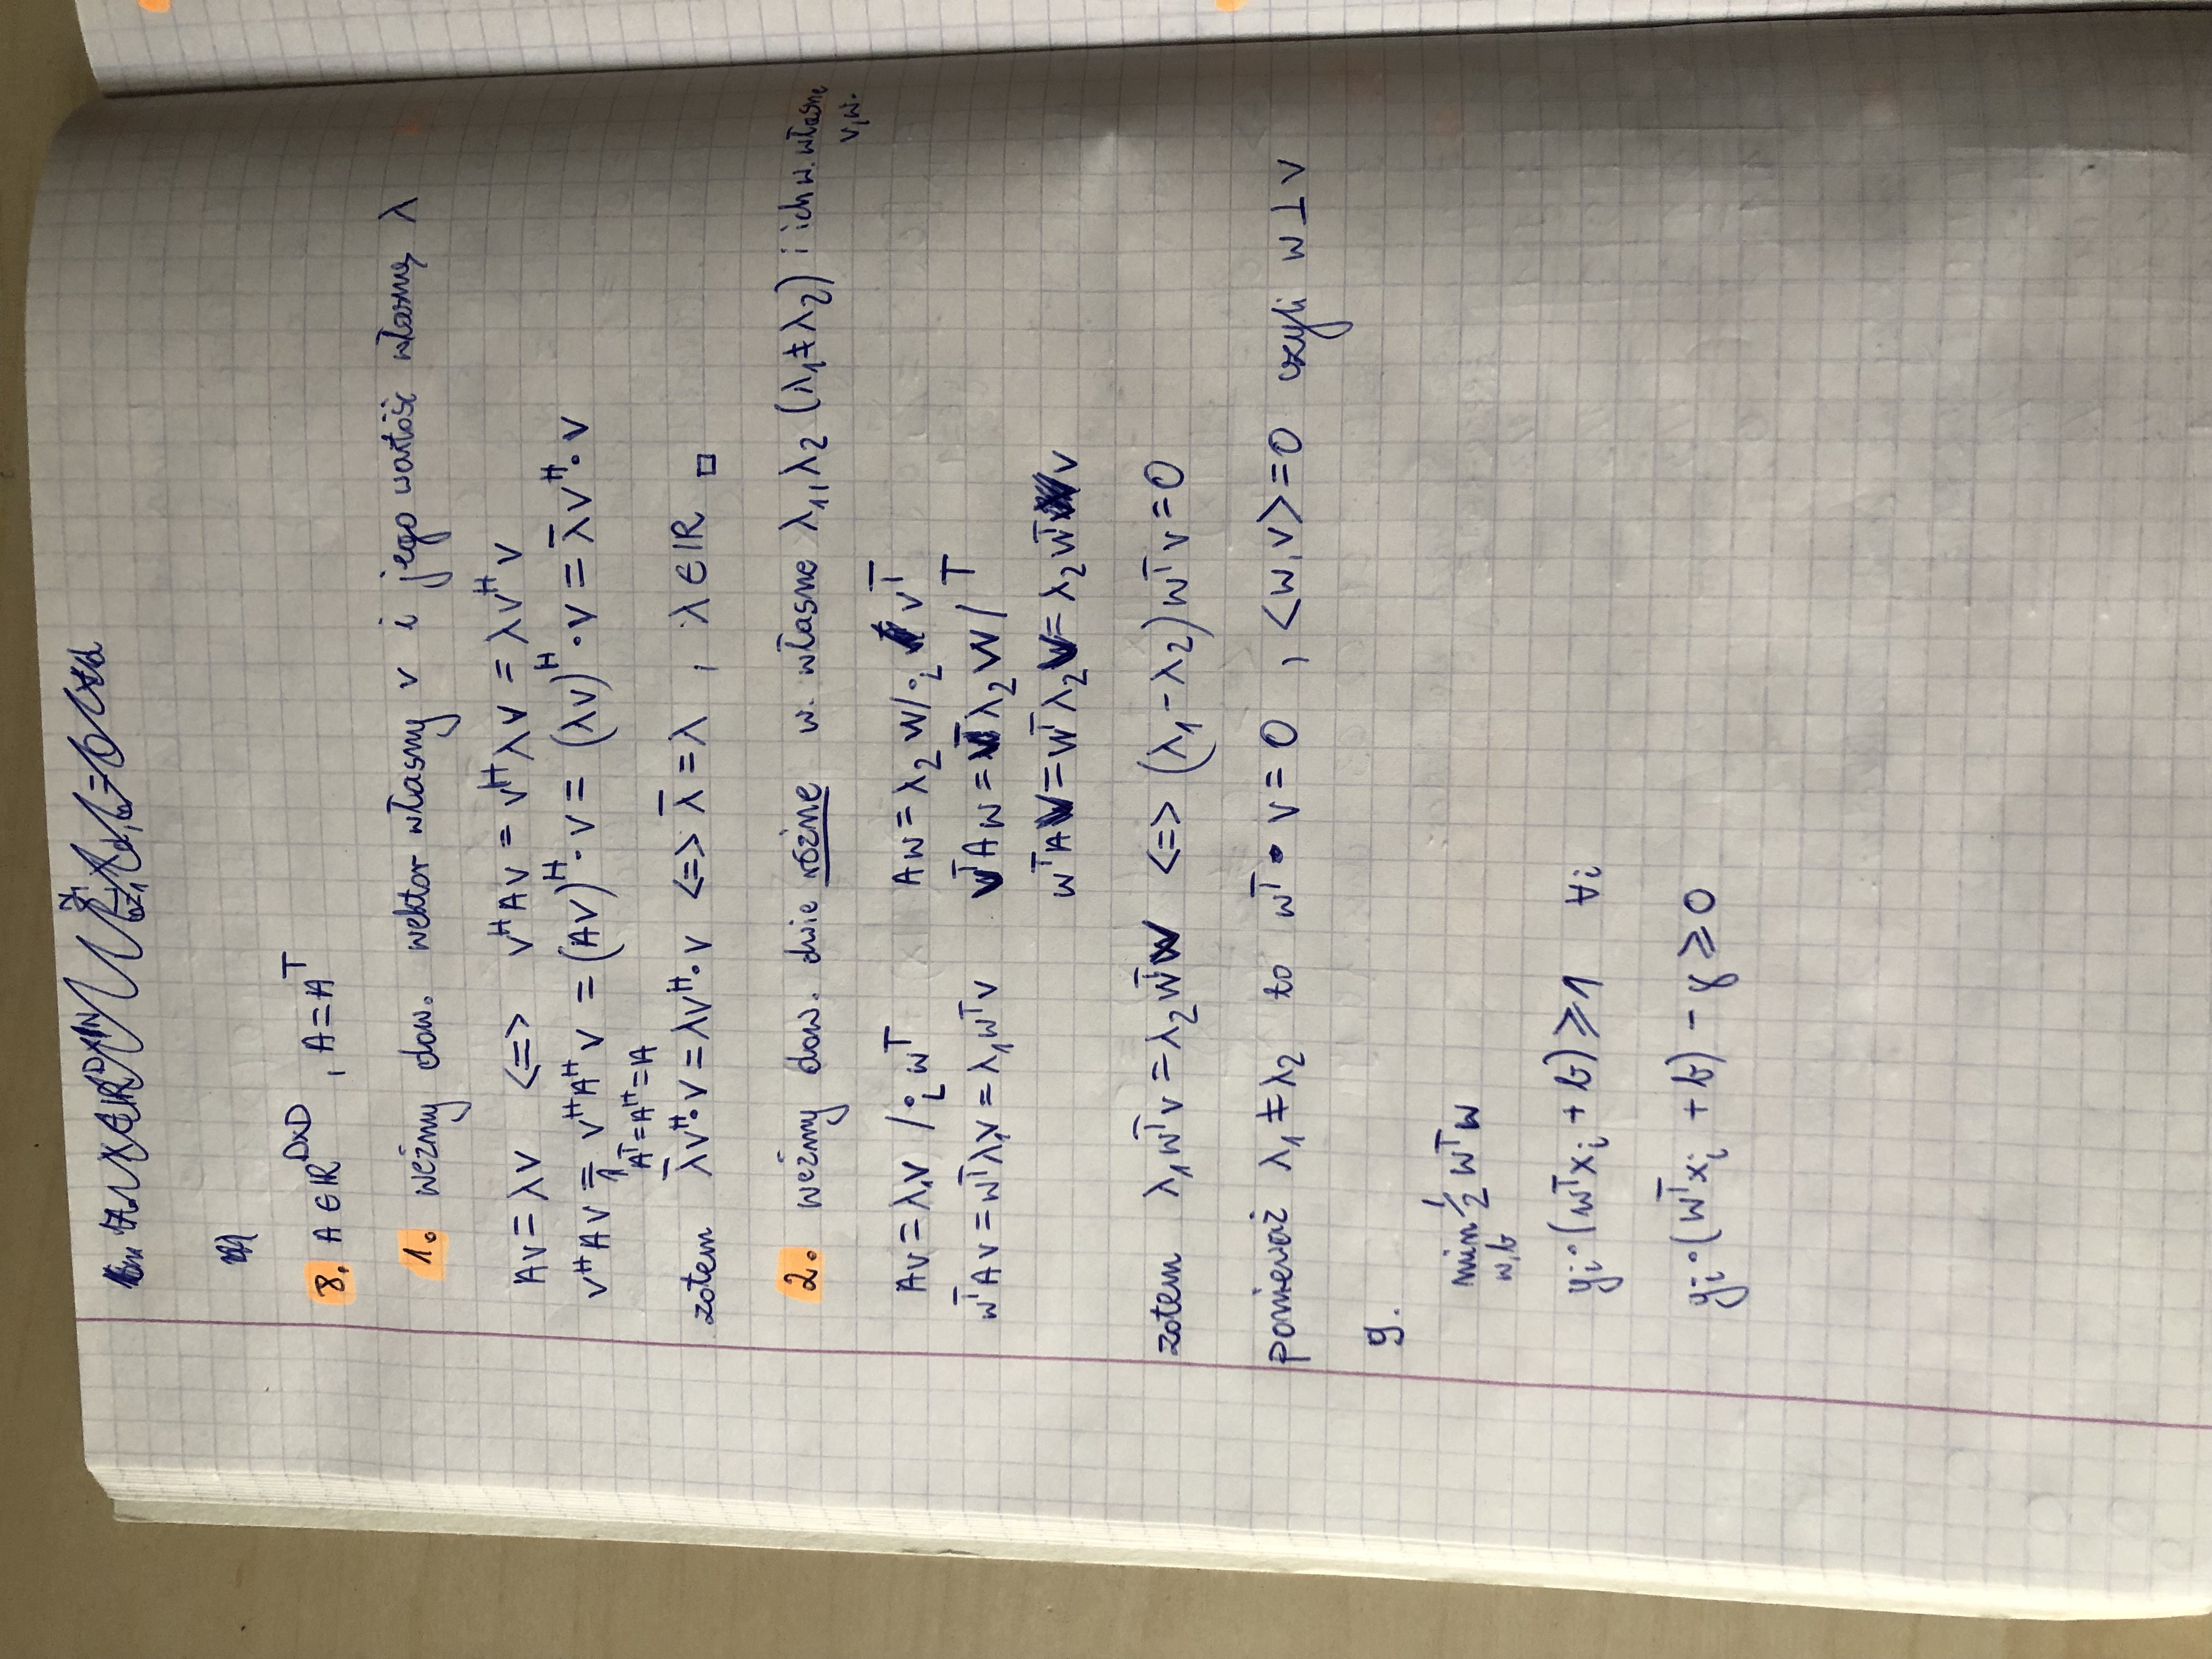 X ∈ ℝ^{D×N}
8. A ∈ ℝ^{D×D} , A = A^T
1. weźmy dow. wektor własny v i jego wartość własną λ
Av = λv <=> v^H A v = v^H λ v = λ v^H v
v^H A v = v^H A^H v = (Av)^H · v = (λv)^H · v = λ̄ v^H · v
A^T = A^H = A
zatem λ̄ v^H · v = λ v^H · v <=> λ̄ = λ , λ ∈ ℝ □
2. weźmy dow. dwie różne w. własne λ₁, λ₂ (λ₁ ≠ λ₂) i ich w. własne
v, w.
Av = λ₁v /·L w^T Aw = λ₂ w /·L v^T
w^T A v = w^T λ₁ v = λ₁ w^T v v^T A w = v^T λ₂ w / T
w^T A v = w^T λ₂ v = λ₂ w^T v
zatem λ₁ w^T v = λ₂ w^T v <=> (λ₁ - λ₂) w^T v = 0
ponieważ λ₁ ≠ λ₂ to w^T · v = 0 , <w, v> = 0 czyli w ⊥ v
9.
min 1/2 w^T w
w, b
y_i · (w^T x_i + b) ≥ 1 ∀i
y_i · (w^T x_i + b) - γ ≥ 0